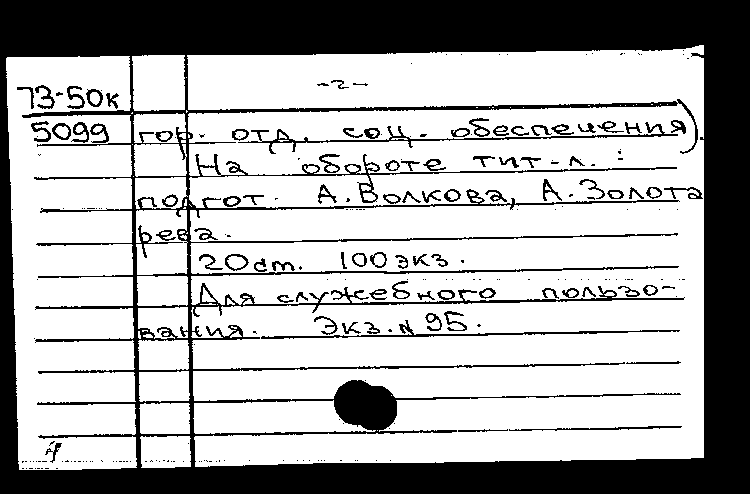 -2-
73-50к
5099 гор. отд. соц. обеспечения).
На обороте тит-л. :
подгот. А. Волкова, А. Золота
рева.
20 ст. 100 экз.
Для служебного пользо-
вания. Экз. N 95.